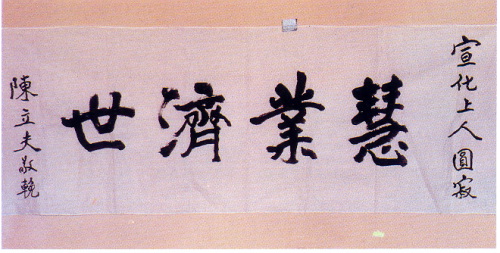 宣化上人圓寂
慧業濟世
陳立夫敬輓